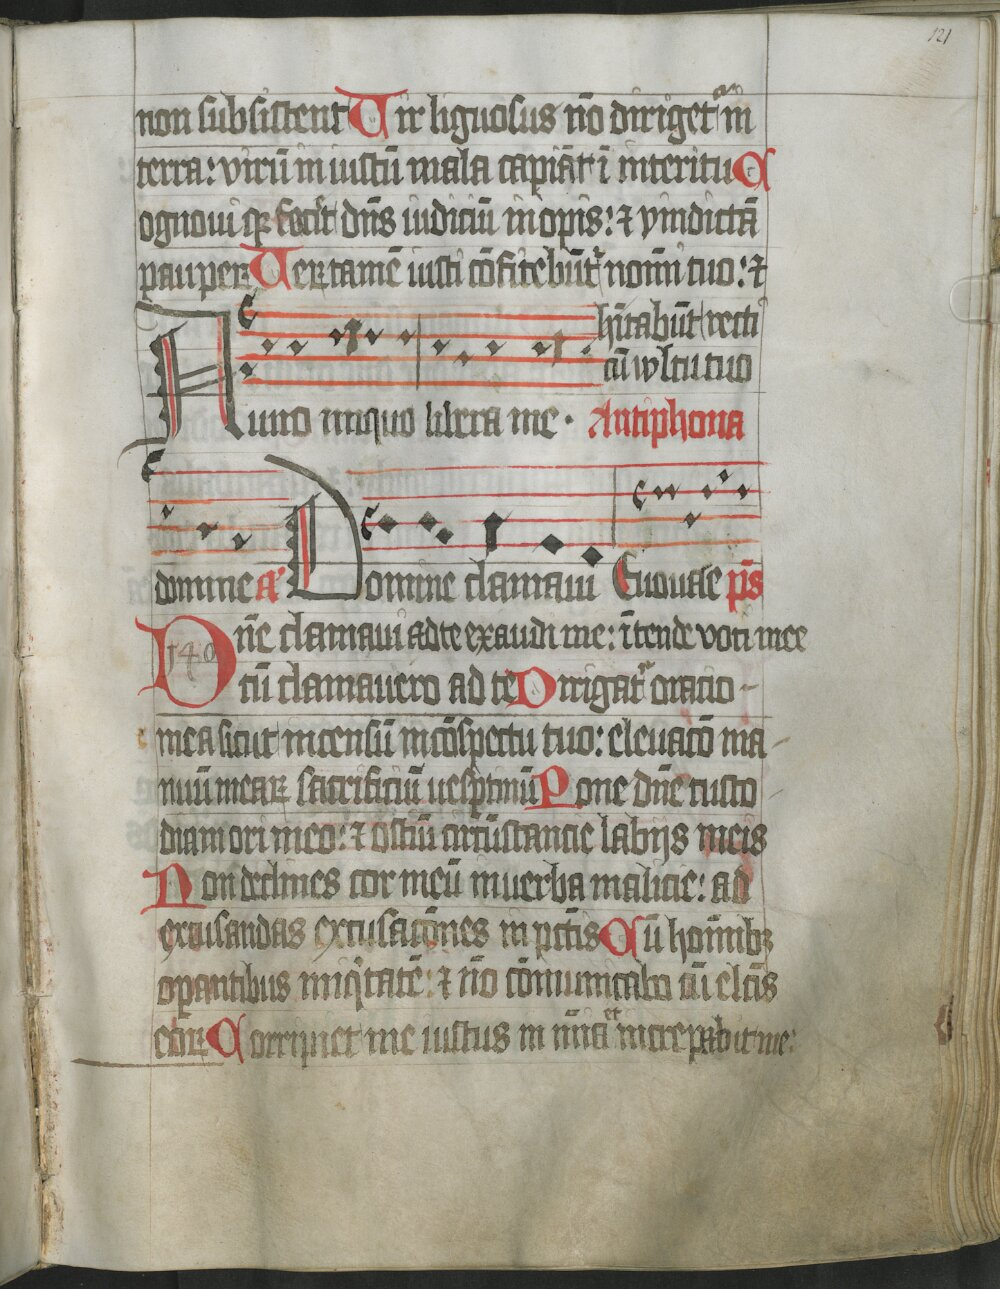 121
non subsistent Vir liguosus nō dirigetᷣ in
terra: virū iniustū mala capiāt ī interitu C
ognoui qꝛ faciet dn̄s iudiciū inopis: ⁊ vindictā
pauperꝝ Verūtamē iusti cōfitebūtᷣ nomī tuo: ⁊
hītabūt recti
cū wltu tuo
A uiro iniquo libera me. Antiphona
domine aͣ Domine clamaui Euouae p̄s
140
Dn̄e clamaui ad te exaudi me: ītende voci mee
cū clamauero ad te Dirigatᷣ oracio
mea sicut incensū in cōspectu tuo: eleuacō ma
nuū mearꝝ sacrificiū uesptinū Pone dn̄e custo
diam ori meo: ⁊ ostiū circūstancie labijs meis
Non declines cor meū in uerba malicie: ad
excusandas excusacōnes in pctīs Cū homībꝫ
opantibus iniqͥtatē: ⁊ nō cōmunicabo cū elcīs
eorꝝ Corripiet me iustus in mīa et increpabit me: